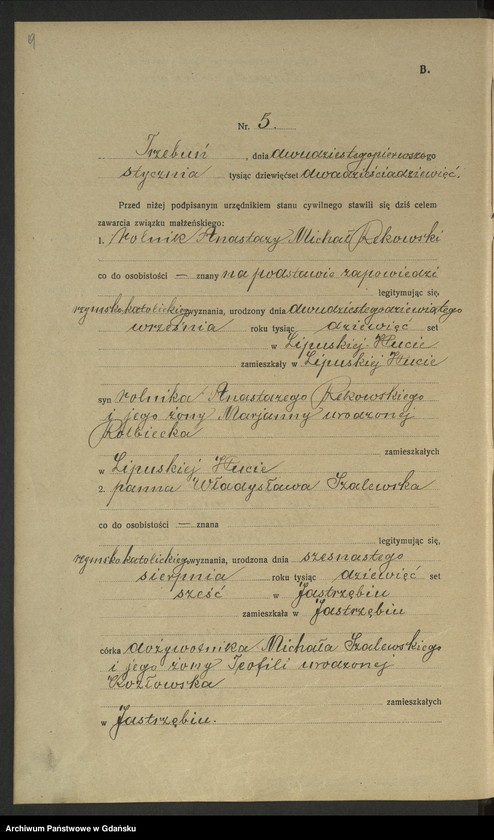 B.
Nr. 5.
Trzebuń, dnia dwudziestegopierwszego
stycznia tysiąc dziewięćset dwadzieściadziewięć.
Przed niżej podpisanym urzędnikiem stanu cywilnego stawili się dziś celem
zawarcia związku małżeńskiego:
1. rolnik Anastazy Michał Rekowski
co do osobistości — znany na podstawie zapowiedzi
legitymując się,
rzymskokatolickiego wyznania, urodzony dnia dwudziestegodziewiątego
września roku tysiąc dziewięć set
w Lipuskiej-Hucie
zamieszkały w Lipuskiej Hucie
syn rolnika Anastazego Rekowskiego
i jego żony Marjanny urodzonej
Kolbiecka
zamieszkałych
w Lipuskiej Hucie
2. panna Władysława Szalewska
co do osobistości — znana
legitymując się,
rzymskokatolickiego wyznania, urodzona dnia szesnastego
sierpnia roku tysiąc dziewięć set
sześć w Jastrzębiu
zamieszkała w Jastrzębiu
córka dożywotnika Michała Szalewskiego
i jego żony Teofili urodzonej
Kozłowska
zamieszkałych
w Jastrzębiu.
Archiwum Państwowe w Gdańsku